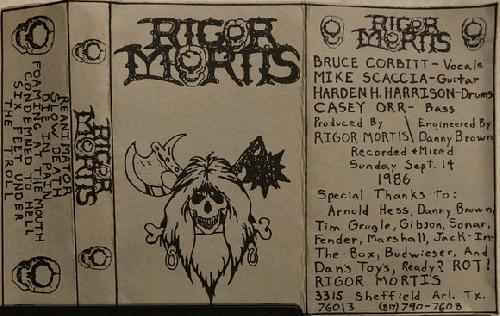 REANIMATOR
SLOW DEATH
DIE IN PAIN
FOAMING AT THE MOUTH
CONDEMNED TO HELL
SIX FEET UNDER
THE TROLL
RIGOR
MORTIS
RIGOR
MORTIS
RIGOR
MORTIS
BRUCE CORBITT - Vocals
MIKE SCACCIA - Guitar
HARDEN H. HARRISON - Drums
CASEY ORR - Bass
Produced By \ Engineered By
RIGOR MORTIS \ Danny Brown
Recorded & Mixed
Sunday Sept. 14
1986
Special Thanks To:
Arnold Hess, Danny Brown,
Tim Grugle, Gibson, Sonar,
Fender, Marshall, Jack-In-
The-Box, Budwieser, And
Dan's Toys, Ready? ROT!
RIGOR MORTIS
3315 Sheffield Arl. Tx.
76013 (817) 790-7608